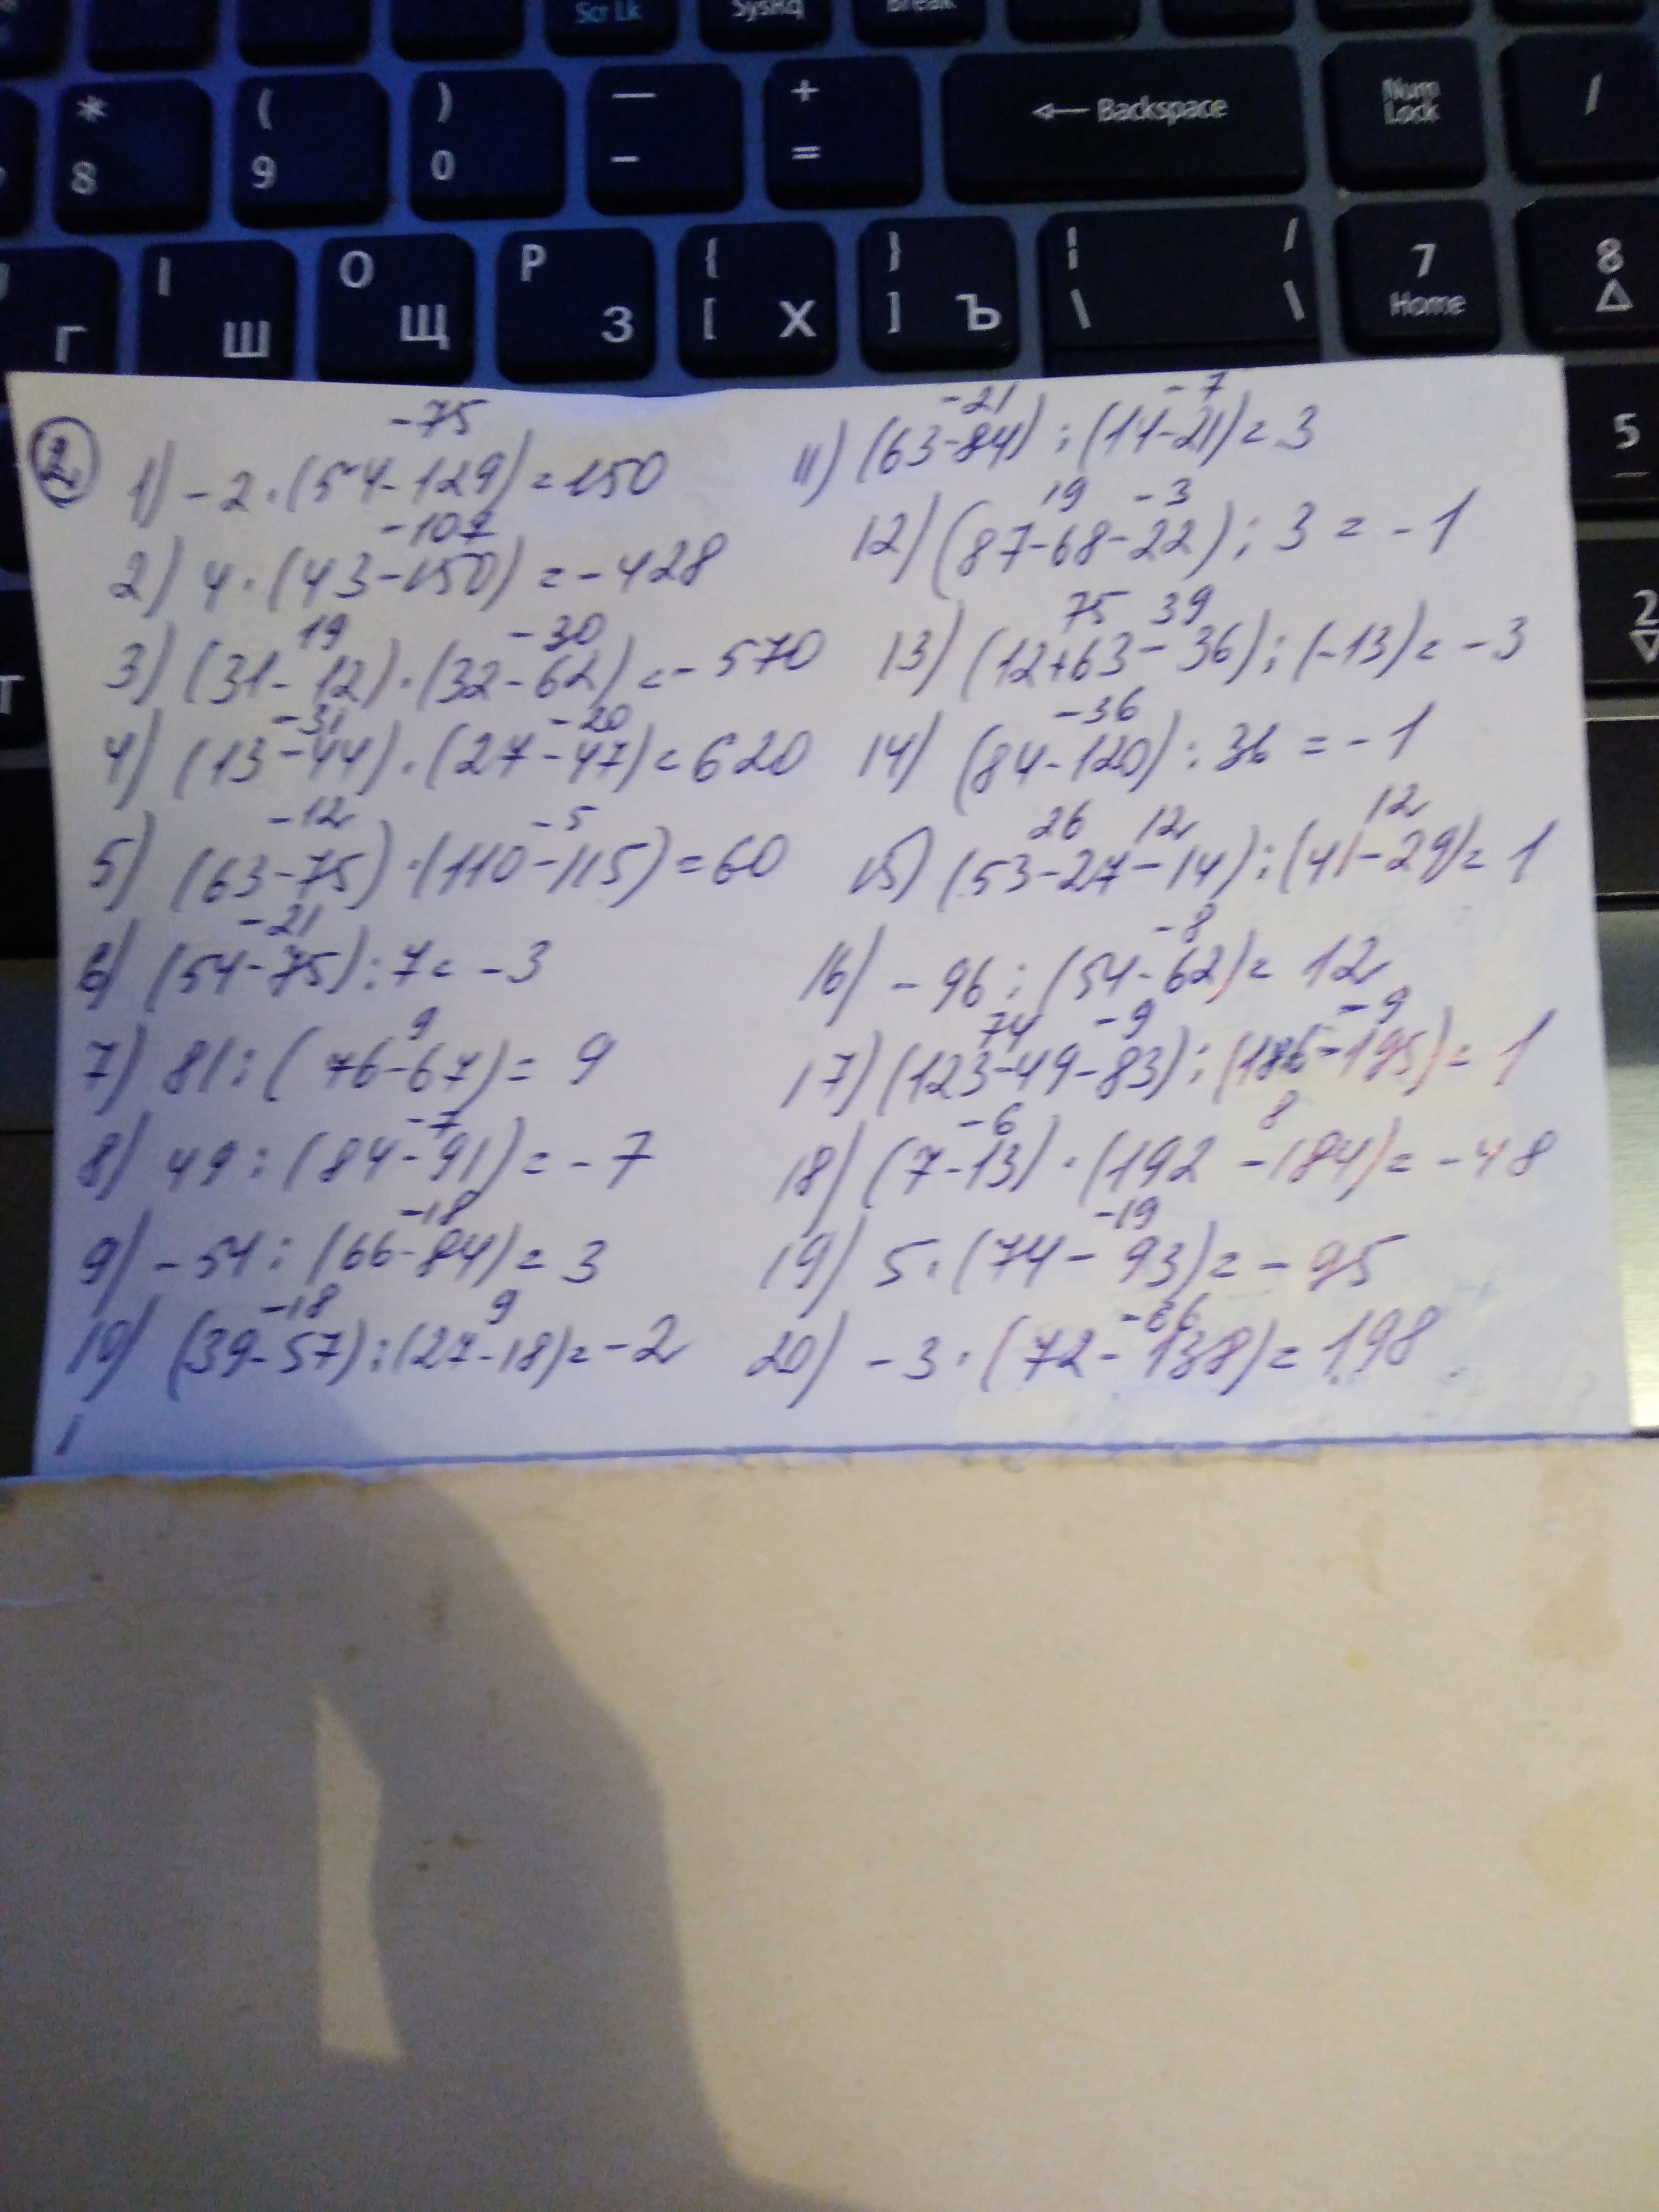 Scr Lk SysRq Break
* 8 ( 9 ) 0 — - + = <— Backspace Num Lock /
Г I Ш O Щ P З { [ Х } ] Ъ | \ / \ 7 Home 8
5
2
2
-75
1) -2·(54-129)=150
-107
2) 4·(43-150)=-428
19 -30
3) (31-12)·(32-62)=-570
-31 -20
4) (13-44)·(27-47)=620
-12 -5
5) (63-75)·(110-115)=60
-21
6) (54-75):7=-3
9
7) 81:(76-67)=9
-7
8) 49:(84-91)=-7
-18
9) -54:(66-84)=3
-18 9
10) (39-57):(27-18)=-2
-21 -7
11) (63-84):(14-21)=3
19 -3
12) (87-68-22):3=-1
75 39
13) (12+63-36):(-13)=-3
-36
14) (84-120):36=-1
26 12 12
15) (53-27-14):(41-29)=1
-8
16) -96:(54-62)=12
74 -9 -9
17) (123-49-83):(186-195)=1
-6 8
18) (7-13)·(192-184)=-48
-19
19) 5·(74-93)=-95
-66
20) -3·(72-138)=198